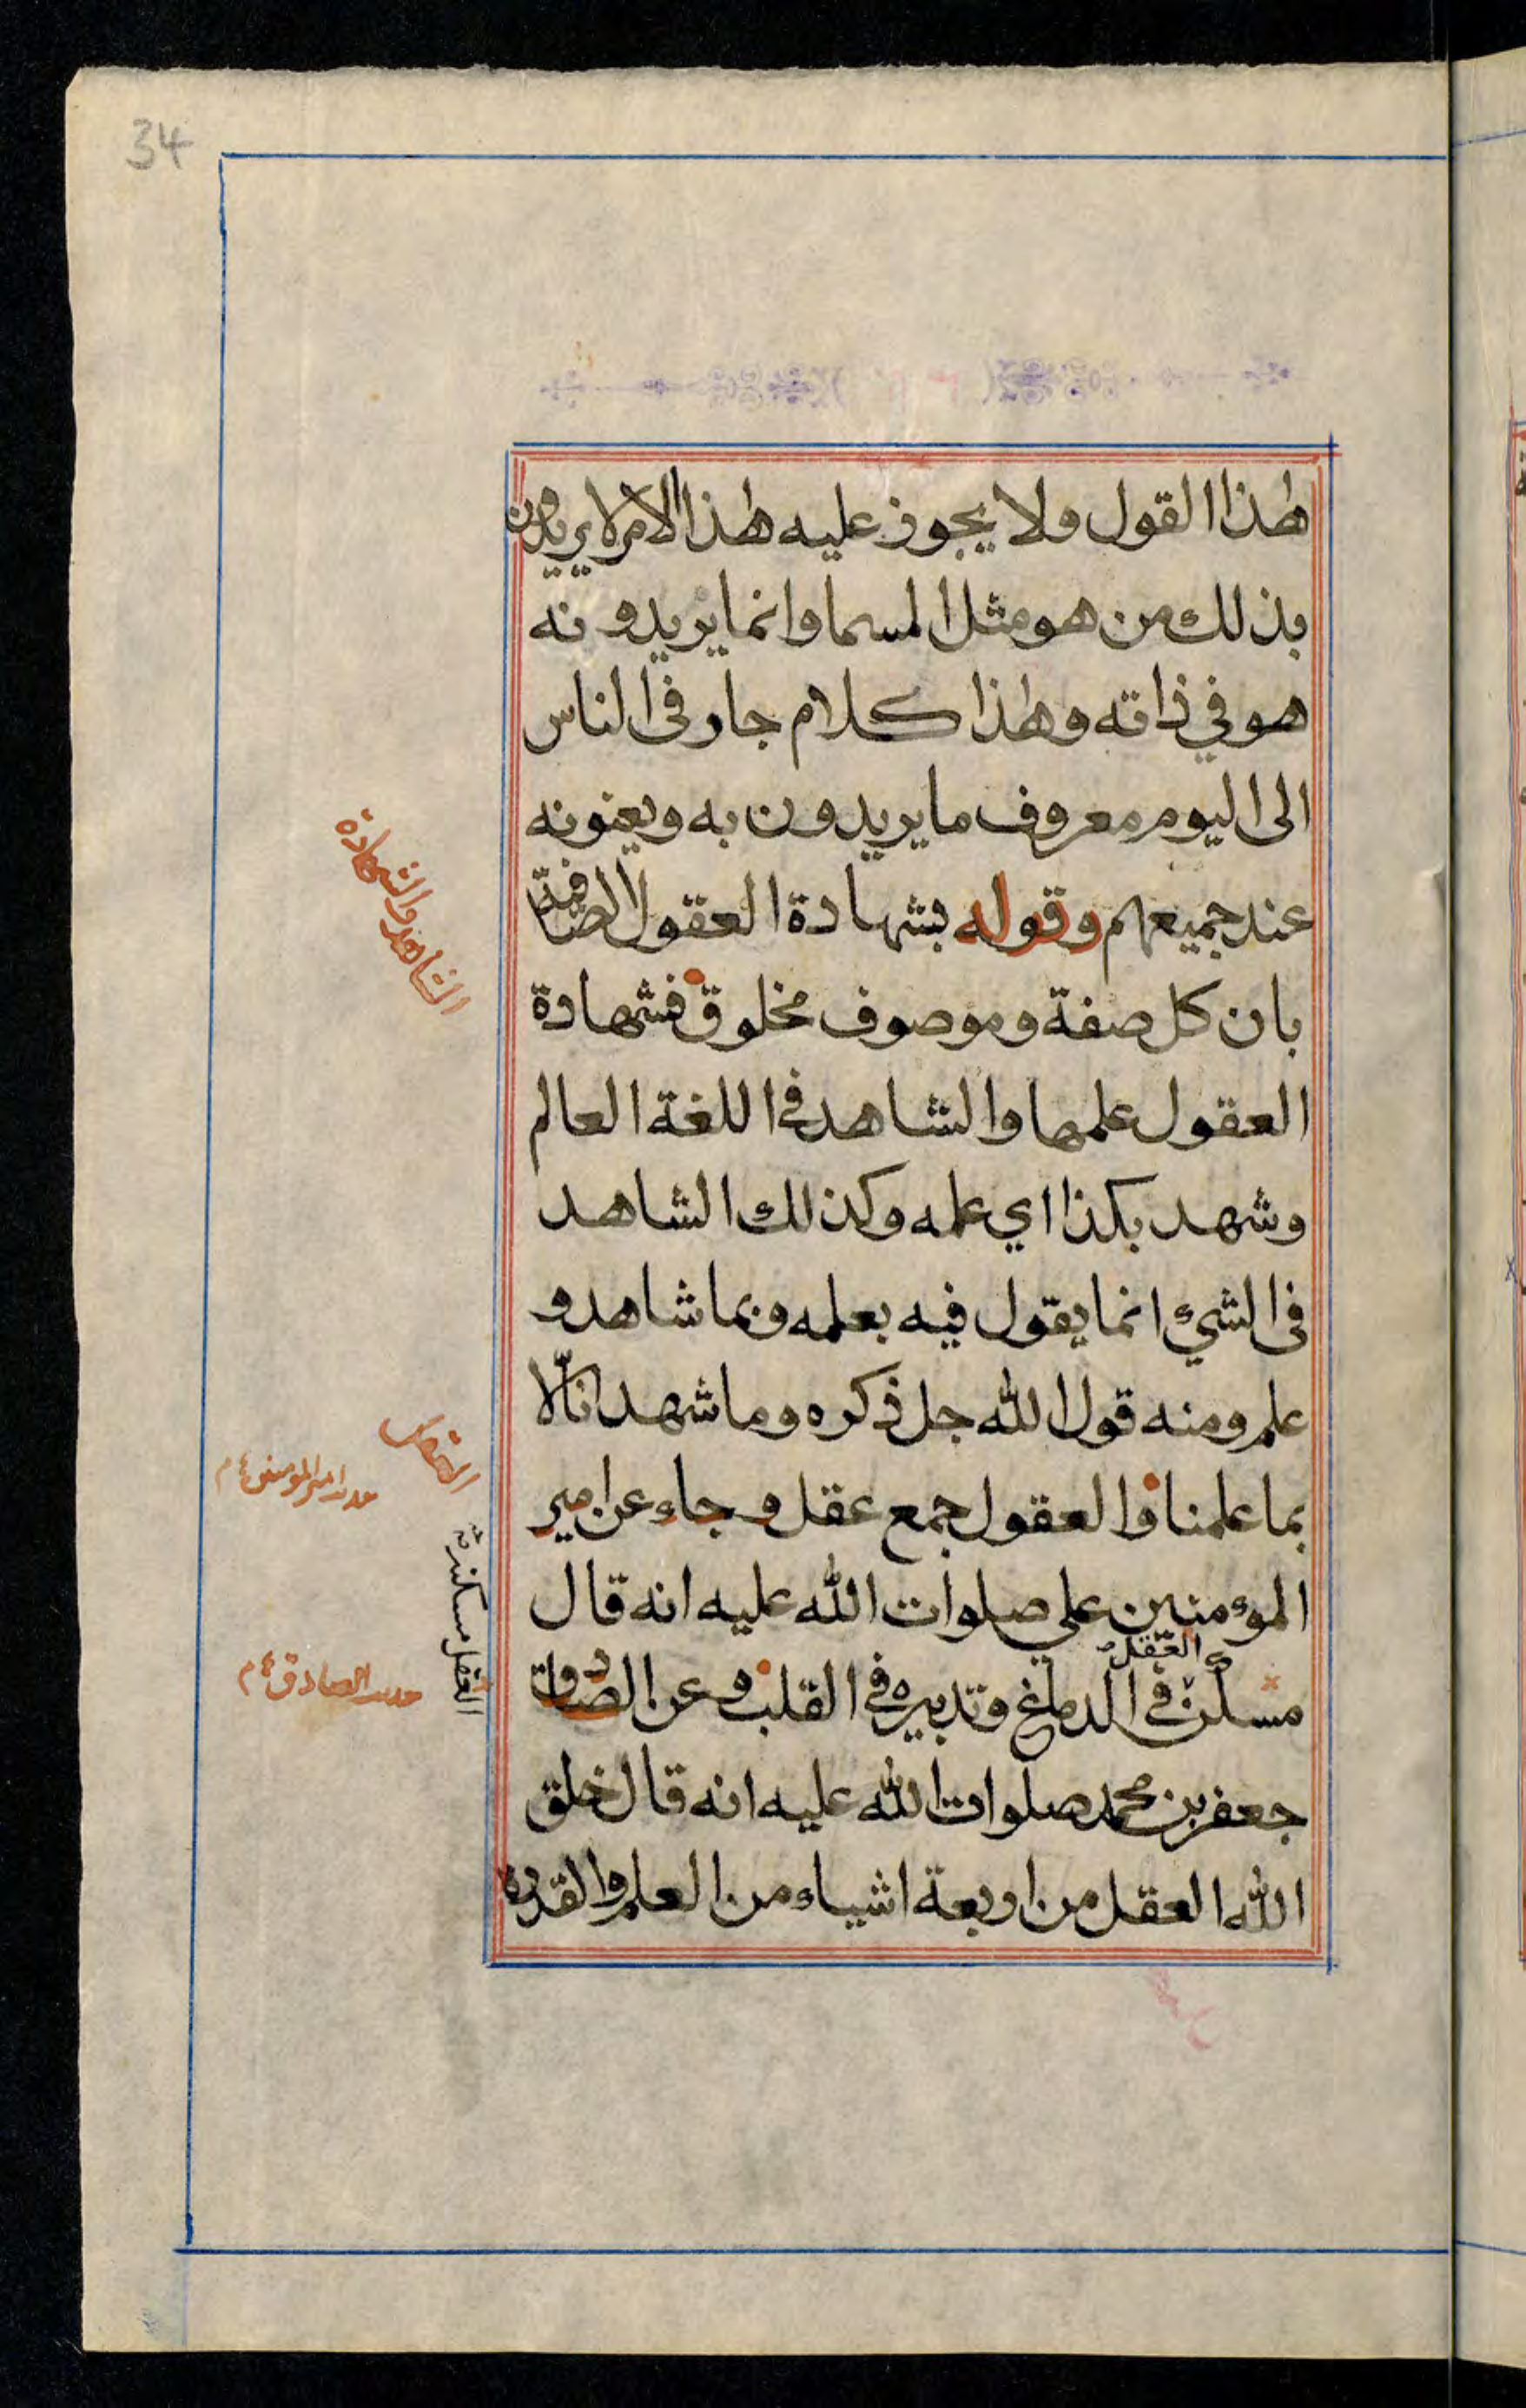 34
هذا القول ولا يجوز عليه هذا الامر لا يريدون
بذلك من هو مثل المسما وانما يريدونه
هو في ذاته وهذا كلام جار فى الناس
الى اليوم معروف ما يريدون به ويعنونه
عند جميعهم وقوله بشهادة العقول الصافية
بان كل صفة وموصوف مخلوق فشهادة
العقول علمها والشاهد فى اللغة العالم
وشهد بكذا اي علمه وكذلك الشاهد
فى الشيء انما يقول فيه بعلمه وبما شاهد و
علم ومنه قول الله جل ذكره وما شهدنا الّا
بما علمنا والعقول جمع عقل وجاء عن امير
المؤمنين علي صلوات الله عليه انه قال
العقل
مسكن فى الدماغ وتدبيره فى القلب وعن الصادق
جعفر بن محمد صلوات الله عليه انه قال خلق
الله العقل من اربعة اشياء من العلم والقدرة
الشاهد والشهادة
العقل
حديث امير المومنين ع م
العقل مسكنه
حديث الصادق ع م